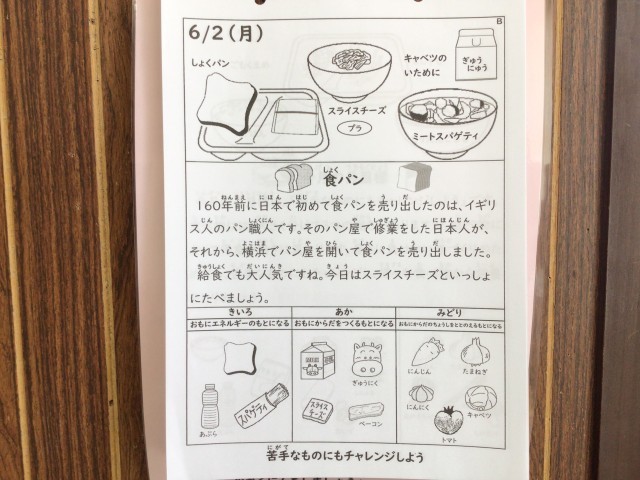 6/2(月)
B
しょくパン
キャベツの
いために
ぎゅう
にゅう
スライスチーズ
プラ
ミートスパゲティ
食パン
160年前に日本で初めて食パンを売り出したのは、イギリ
ス人のパン職人です。そのパン屋で修業をした日本人が、
それから、横浜でパン屋を開いて食パンを売り出しました。
給食でも大人気ですね。今日はスライスチーズといっしょ
にたべましょう。
きいろ
あか
みどり
おもにエネルギーのもとになる
おもにからだをつくるもとになる
おもにからだのちょうしをととのえるもとになる
ぎゅうにく
にんじん
たまねぎ
あぶら
スパゲティ
スライス
チーズ
ベーコン
にんにく
キャベツ
トマト
苦手なものにもチャレンジしよう